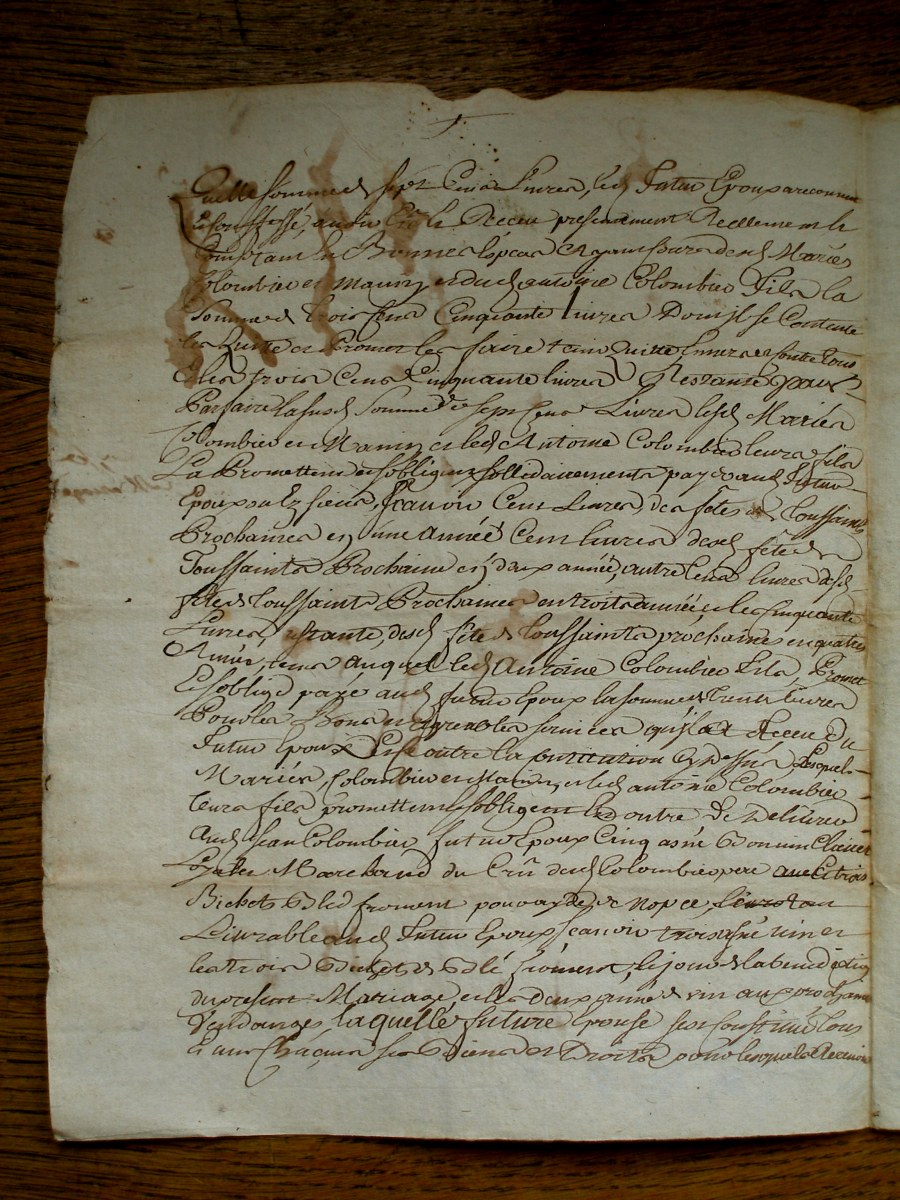 quelle somme de sept Cens Livres, led. futur Epoux a reconnu
Et Confessé, avoir Eu & Receu presentement Reellement &
Comptant En Bonnes Especes Ayant Cours desd. Mariés
Colombier et Mauin et dud. antoine Colombier fils la
somme de trois Cens Cinquante livres Dont jl se Contente
les quitte et Promet les faire tenir quitte Envers et contre tous
& les trois Cens Cinquante livres Restante pour
Parfaire lasusd. Somme de sept Cens Livres lesd. Mariés
Colombier et Mauin et led. Antoine Colombier leurs fils
La Promettent et sobligent sollidairement payer aud. futur
Epoux Scavoir Cent Livres des fetes de Toussaints
Prochaines en une année Cent livres desd. fête de
Toussaints Prochaine en deux année, autre Cens livres desd.
fête de Toussaints Prochaines en trois année, et les Cinquante
Livres restante, desd. fête de Toussaints prochaines en quatre
Année, tems auquel led. Antoine Colombier fils, Promet
Et soblige payé aud. futur Epoux la somme de trente livres
Pour les Bons et agreables services qu'il a Receu du
futur Epoux Et outre la Constitution Cy Dessus Lesquels
Mariés, Colombier et Mauin et led. antoine Colombier
leurs fils promettent & sobligent En outre De Délivrer
Aud. jean Colombier futur Epoux Cinq asné De vin Clairet
Marchand du Crû dud. Colombier pere avec trois
Bichets Bled froment pour ayde de Nopce,
Livrable aud. futur Epoux scavoir trois asné vin et
les trois Bichets de Blé froment, le jour de la benediction
du present Mariage, et les deux année vin aux prochaines
Vendanges, laquelle future Epouse sest Constitué tous
Et uns Chacuns ses Biens et Droits pour lesquels